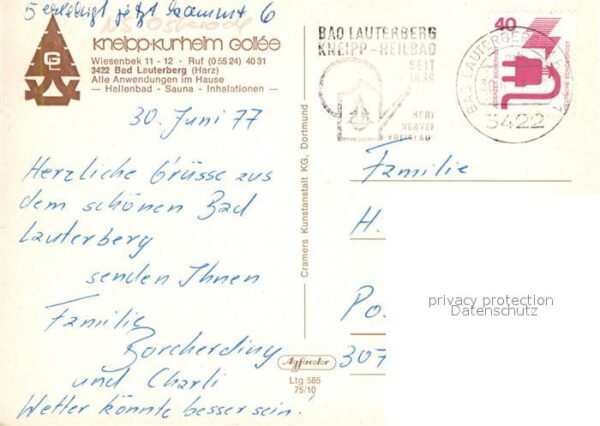 5 erledigt jetzt kommt 6
kneipp-kurheim Gollée
Wiesenbek 11 - 12 · Ruf (0 55 24) 40 31
3422 Bad Lauterberg (Harz)
Alle Anwendungen im Hause
— Hallenbad - Sauna - Inhalationen —
30. Juni 77
Herzliche Grüsse aus
dem schönen Bad
Lauterberg
senden Ihnen
Familie
Borcherding
und Charli
Wetter könnte besser sein!
Cramers Kunstanstalt KG, Dortmund
Agfacolor
Ltg 585
75/10
BAD LAUTERBERG
KNEIPP-HEILBAD
SEIT
1839
HERZ
NERVEN
KREISLAUF
BAD LAUTERBERG
3422
40
JEDERZEIT SICHERHEIT
DEUTSCHE BUNDESPOST
Familie
H.
Po.
307
privacy protection
Datenschutz